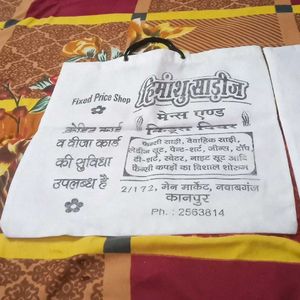 Fixed Price Shop
हिमांशु साड़ीज
मेन्स एण्ड
किड्स वियर
क्रेडिट कार्ड
व वीजा कार्ड
की सुविधा
उपलब्ध है
फैन्सी साड़ी, वैवाहिक साड़ी,
लेडीज सूट, पैन्ट-शर्ट, जीन्स, टॉप,
टी-शर्ट, स्वेटर, नाइट सूट आदि
फैन्सी कपड़ों का विशाल शोरूम
2/172, मेन मार्केट, नवाबगंज
कानपुर
Ph. : 2563814